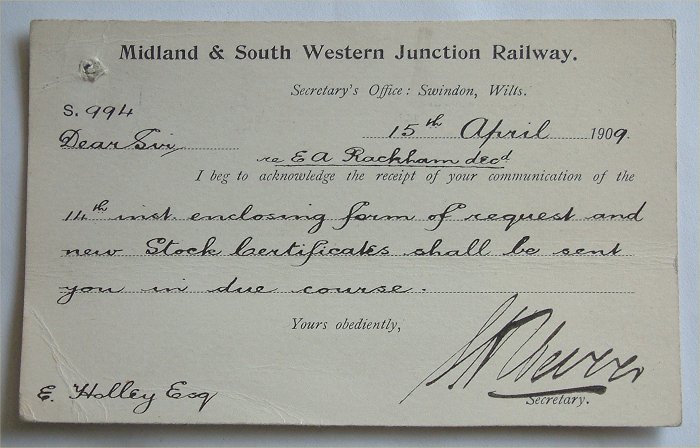 Midland & South Western Junction Railway.
Secretary's Office: Swindon, Wilts.
S. 994
15th April 1909.
Dear Sir,
re E A Rackham decd
I beg to acknowledge the receipt of your communication of the
14th inst. enclosing form of request and
new Stock Certificates shall be sent
you in due course.
Yours obediently,
Secretary.
E. Holley Esq